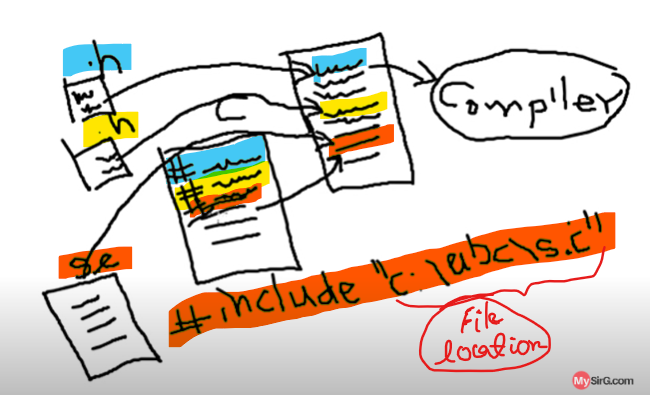 .h
.h
C
Compiler
#
#
#
#include "c:\abc\s.c"
File
location
MySirG.com